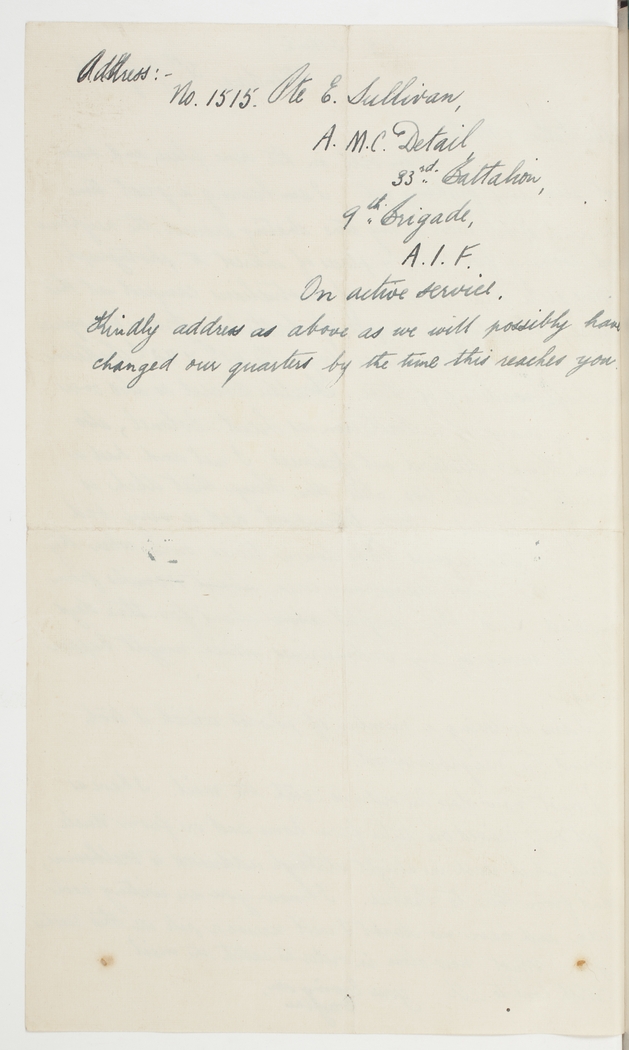 Address:-
No. 1515. Pte E. Sullivan,
A. M.C. Detail,
33rd. Battalion,
9th. Brigade,
A. I. F.
On active service.
Kindly address as above as we will possibly have
changed our quarters by the time this reaches you.